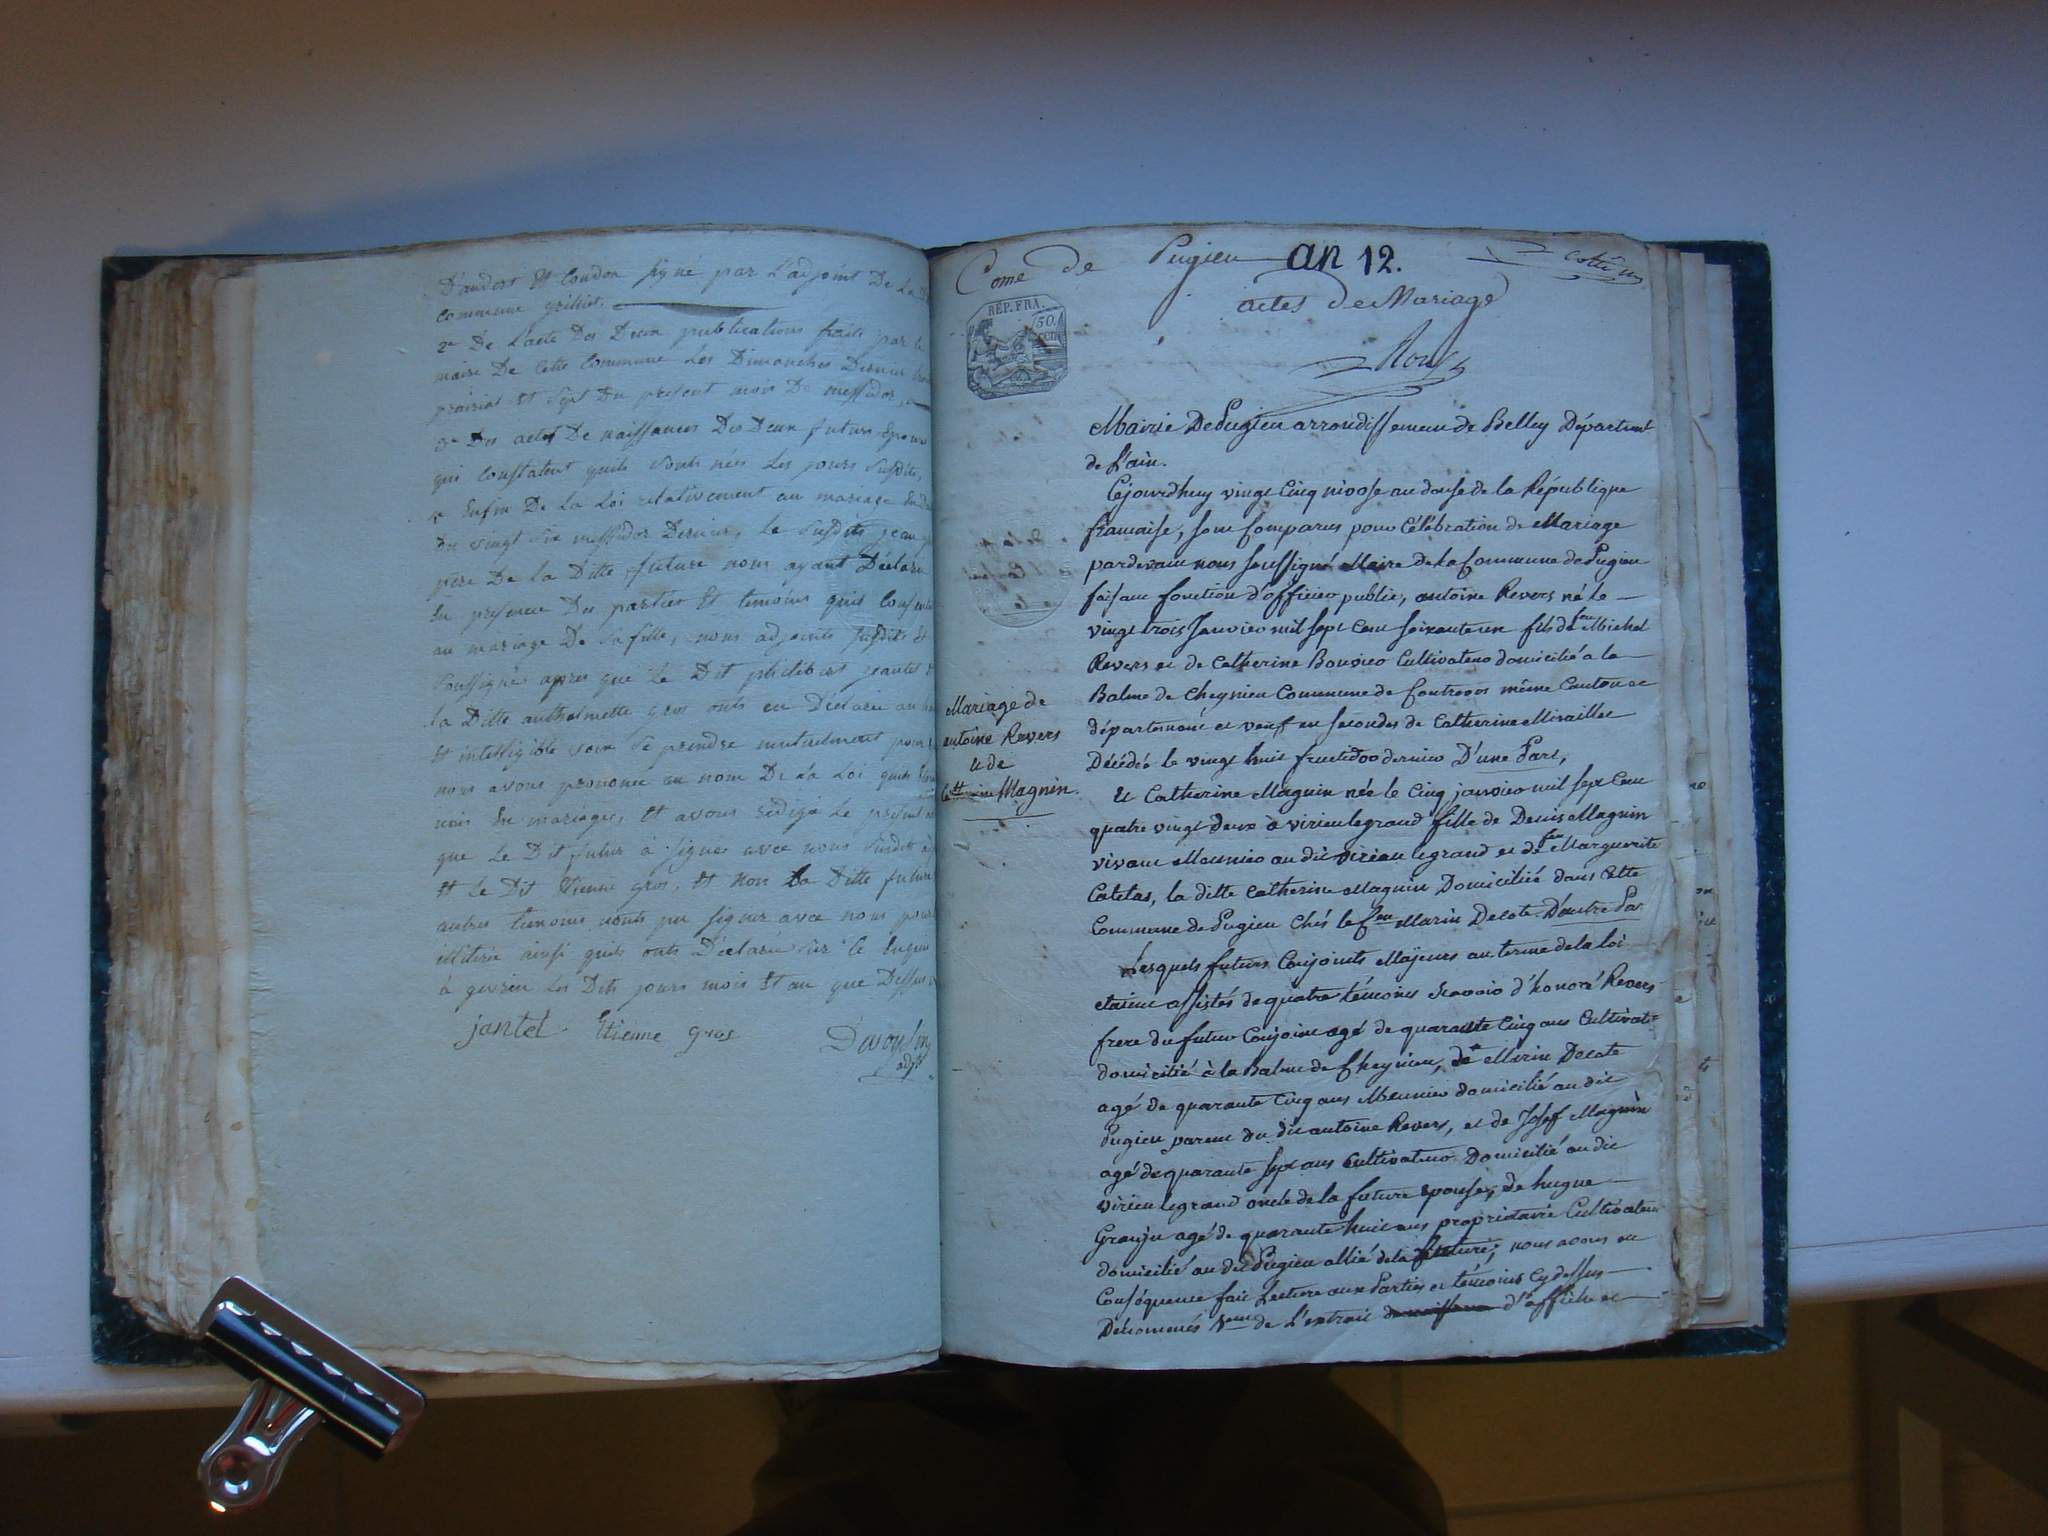 D'andert Et Condon signé par L'adjoint De La
commune grilliet.
2e De L'acte Des Deux publications faits par le
maire De Cette Commune Les Dimanches Dernier
prairial Et Sept Du present mois De messidor,
3e Des actes De naissances Des Deux futurs Epoux
qui Constatent quils Sonts nées Les jours Susdits,
Enfin De La Loi relativement au mariage
Du vingt Six messidor Dernier, le Susdit jean
père De La Ditte future nous ayant Déclaré
En presence Des parties Et temoins quil Consent
au mariage De Sa fille, nous adjoint Susdit Et
Soussigné apres que Le Dit philibert jantet
la Ditte anthelmette gros onts eu Déclaré
Et intelligible voix Se prendre mutuelment pour
nous avons prononcé au nom De La Loi quils
unis En mariage, Et avons Redigé Le present
que Le Dit futur à Signé avec nous Susdit
Et Le Dit Etienne gros, Et Non La Ditte future
autres temoins n'onts pu signer avec nous pour
illitéré ainsi quils onts Déclaré Sur le
à Les Dits jours mois Et an que Dessus
jantet Etienne gros
adjt
Come de Pugieu an 12.
actes de Mariage
REP. FRA.
50.
CEN.
Mairie De Pugieu arrondissement de Belley Département
de L'ain.
Cejourdhuy vingt Cinq nivose an douse de la République
françaîse, sont Comparus pour Célébration de Mariage
pardevant nous soussigné Maire de la Commune de Pugieu
faisant fonction d'officier public, antoine Revers né le
vingt trois Janvier mil sept Cent soixante un fils de feu Michel
Revers et de Catherine Bouvier Cultivateur domicilié a la
Balme de Cheynieu Commune de Contrevos même Canton et
département et veuf en secondes de Catherine Miraillet
Décédée le vingt huit fructidor dernier D'une Part,
Mariage de
antoine Revers
et de
Catherine Magnin.
Et Catherine Magnin née le Cinq janvier mil sept Cent
quatre vingt deux à virieu legrand fille de Denis Magnin
vivant Meunier au dit virieu legrand et de feu Marguerite
Catelas, la ditte Catherine Magnin Domiciliée dans Cette
Commune de Pugieu Chés le feu Marin Decote D'autre Par
Lesquels futurs Conjoints Majeurs au terme de la loi
etaient assistés de quatre témoins Scavoir d'honoré Revers
frere du futur Conjoint agé de quarante Cinq ans Cultivat
domicilié à la Balme de Cheynieu, de Mirin Decote
agé de quarante Cinq ans Meunier domicilié au dit
Pugieu parent du dit antoine Revers, et de Josef Magnin
agé de quarante sept ans Cultivateur Domicilié au dit
virieu legrand oncle de la future Epouse, de hugue
Granju agé de quarante huit ans propriétaire Cultivateur
domicilié au dit Pugieu allié de la future; nous avons en
Conséquence fait Lecture aux Parties et témoins Cy dessus
Dénommés de L'extrait d'affiche et